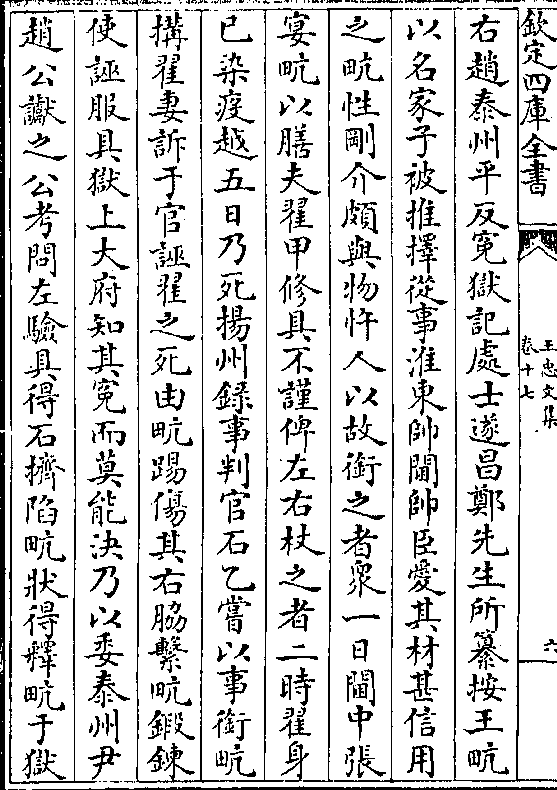 欽定四庫全書
王忠文集
卷十七
六
右趙泰州平反寃獄記處士遂昌鄭先生所纂按王畒
以名家子被推擇從事淮東帥閫帥臣愛其材甚信用
之畒性剛介頗與物忤人以故銜之者衆一日閫中張
宴畒以膳夫翟甲修具不謹俾左右杖之者二時翟身
已染疫越五日乃死揚州錄事判官石乙嘗以事銜畒
搆翟妻訴于官誣翟之死由畒踢傷其右脇繫畒鍛鍊
使誣服具獄上大府知其寃而莫能决乃以委泰州尹
趙公讞之公考問左驗具得石擠陷畒狀得釋畒于獄